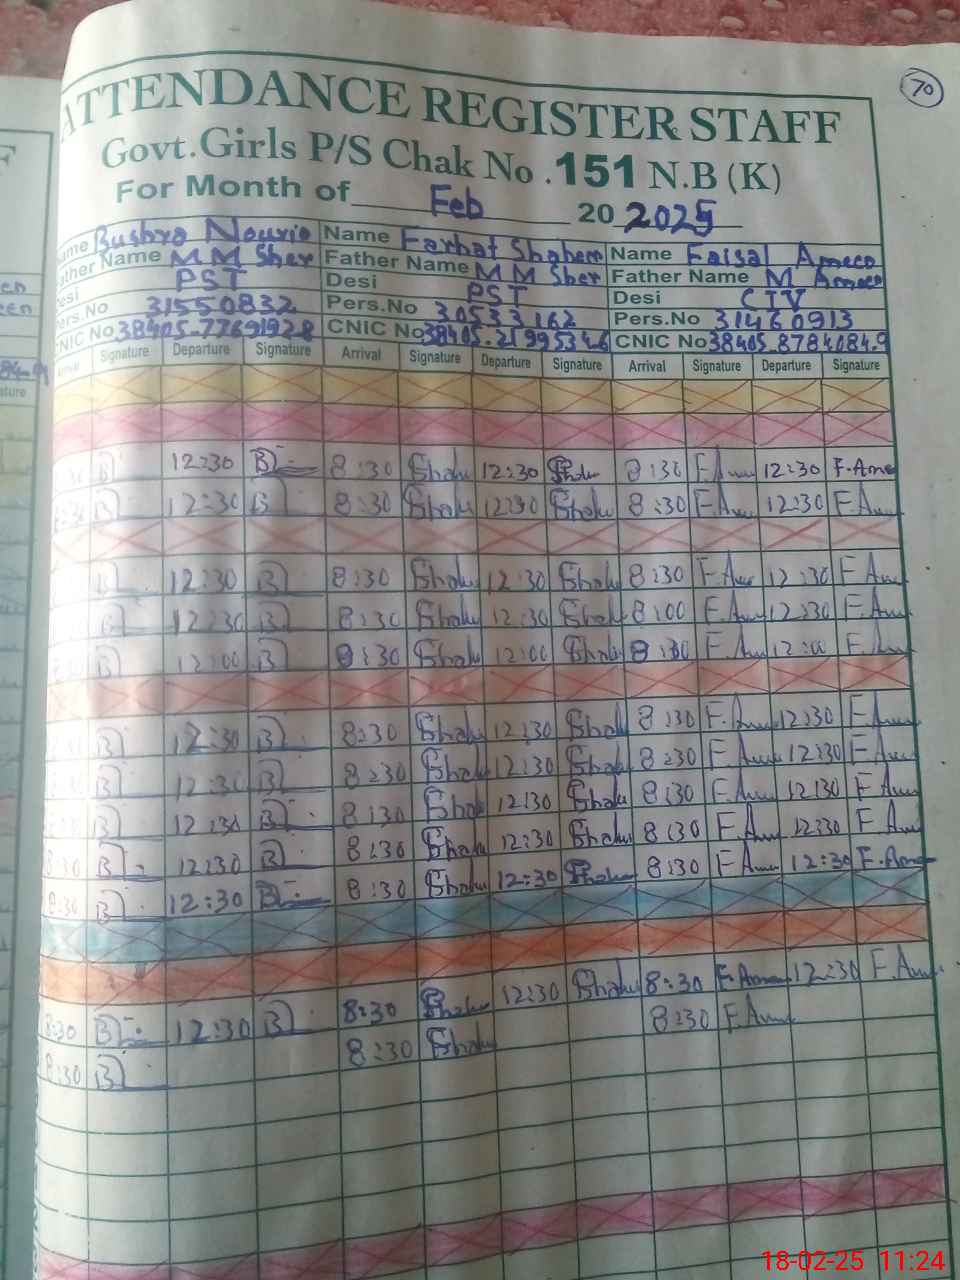 70
ATTENDANCE REGISTER STAFF
Govt.Girls P/S Chak No .151 N.B (K)
For Month of Feb 20 2025
Name Bushra Name Farhat Shaheen Name Faisal Ameen
Father Name M M Sher Father Name M M Sher Father Name M Ameen
Desi PST Desi PST Desi
Pers.No 31550832 Pers.No 30533162 Pers.No 31460913
CNIC No 38405-7769192-8 CNIC No 38405-2199534-6 CNIC No 38405-8784084-9
Arrival Signature Departure Signature Arrival Signature Departure Signature Arrival Signature Departure Signature
B 12:30 B 8:30 Shahe 12:30 Shahe 8:30 F.Ame 12:30 F.Ame
B 12:30 B 8:30 Shahe 12:30 Shahe 8:30 F.Ame 12:30 F.Ame
B 12:30 B 8:30 Shahe 12:30 Shahe 8:30 F.Ame 12:30 F.Ame
B 12:30 B 8:30 Shahe 12:30 Shahe 8:00 F.Ame 12:30 F.Ame
B 12:00 B 8:30 Shahe 12:00 Shahe 8:30 F.Ame 12:00 F.Ame
B 12:30 B 8:30 Shahe 12:30 Shahe 8:30 F.Ame 12:30 F.Ame
B 12:30 B 8:30 Shahe 12:30 Shahe 8:30 F.Ame 12:30 F.Ame
B 12:30 B 8:30 Shahe 12:30 Shahe 8:30 F.Ame 12:30 F.Ame
8:30 B 12:30 B 8:30 Shahe 12:30 Shahe 8:30 F.Ame 12:30 F.Ame
8:30 B 12:30 B 8:30 Shahe 12:30 Shahe 8:30 F.Ame 12:30 F.Ame
8:30 B 12:30 B 8:30 Shahe 12:30 Shahe 8:30 F.Ame 12:30 F.Ame
8:30 B 8:30 Shahe 8:30 F.Ame
18-02-25 11:24